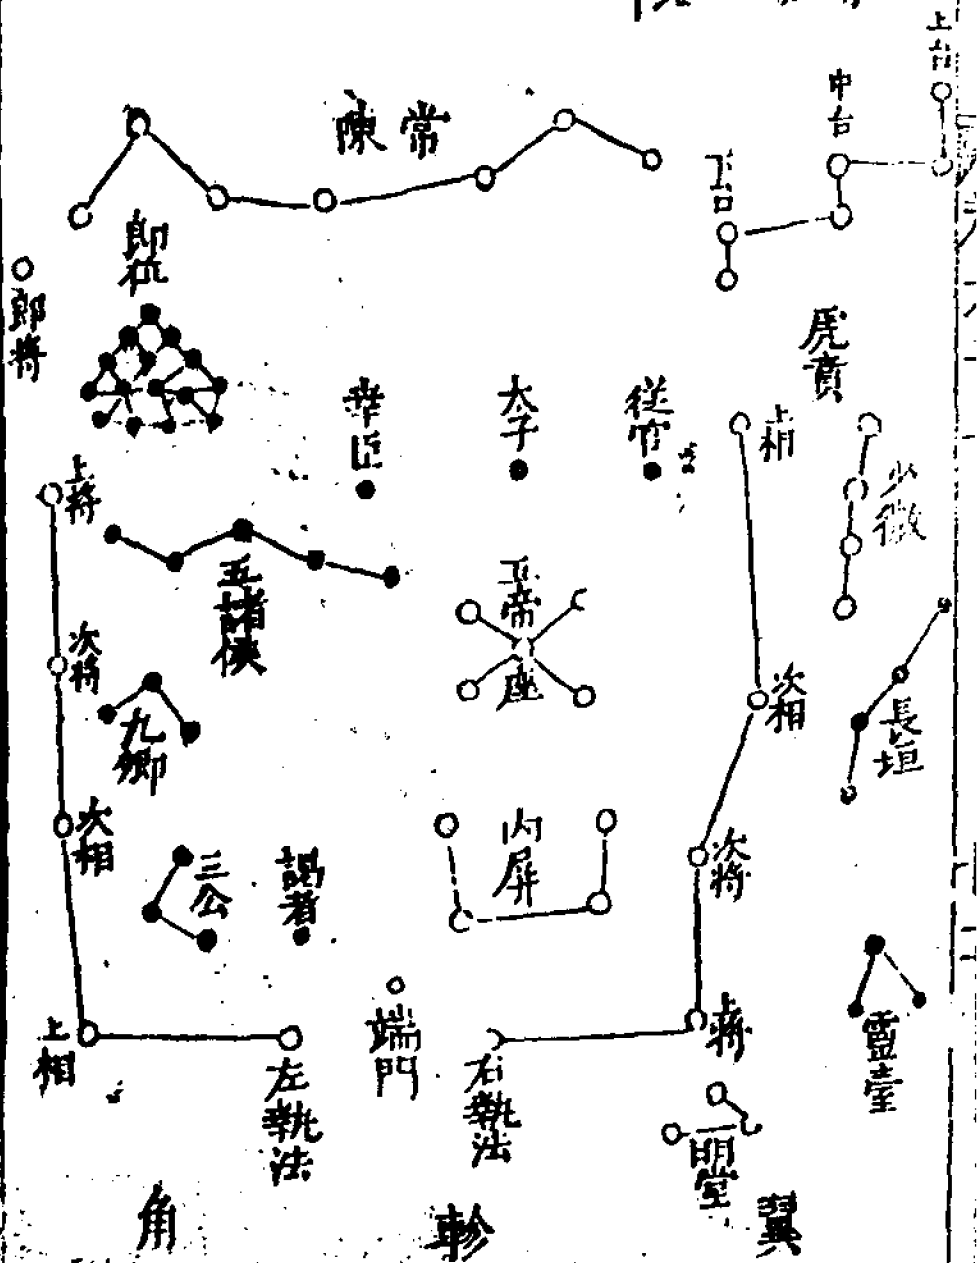 上台
中台
下台
常陳
郎位
郎將
虎賁
幸臣
太子
從官
上相
少微
上將
五諸侯
五帝座
次將
次相
長垣
九卿
次相
三公
謁者
內屏
次將
上相
左執法
端門
右執法
上將
靈臺
明堂
角
軫
翼